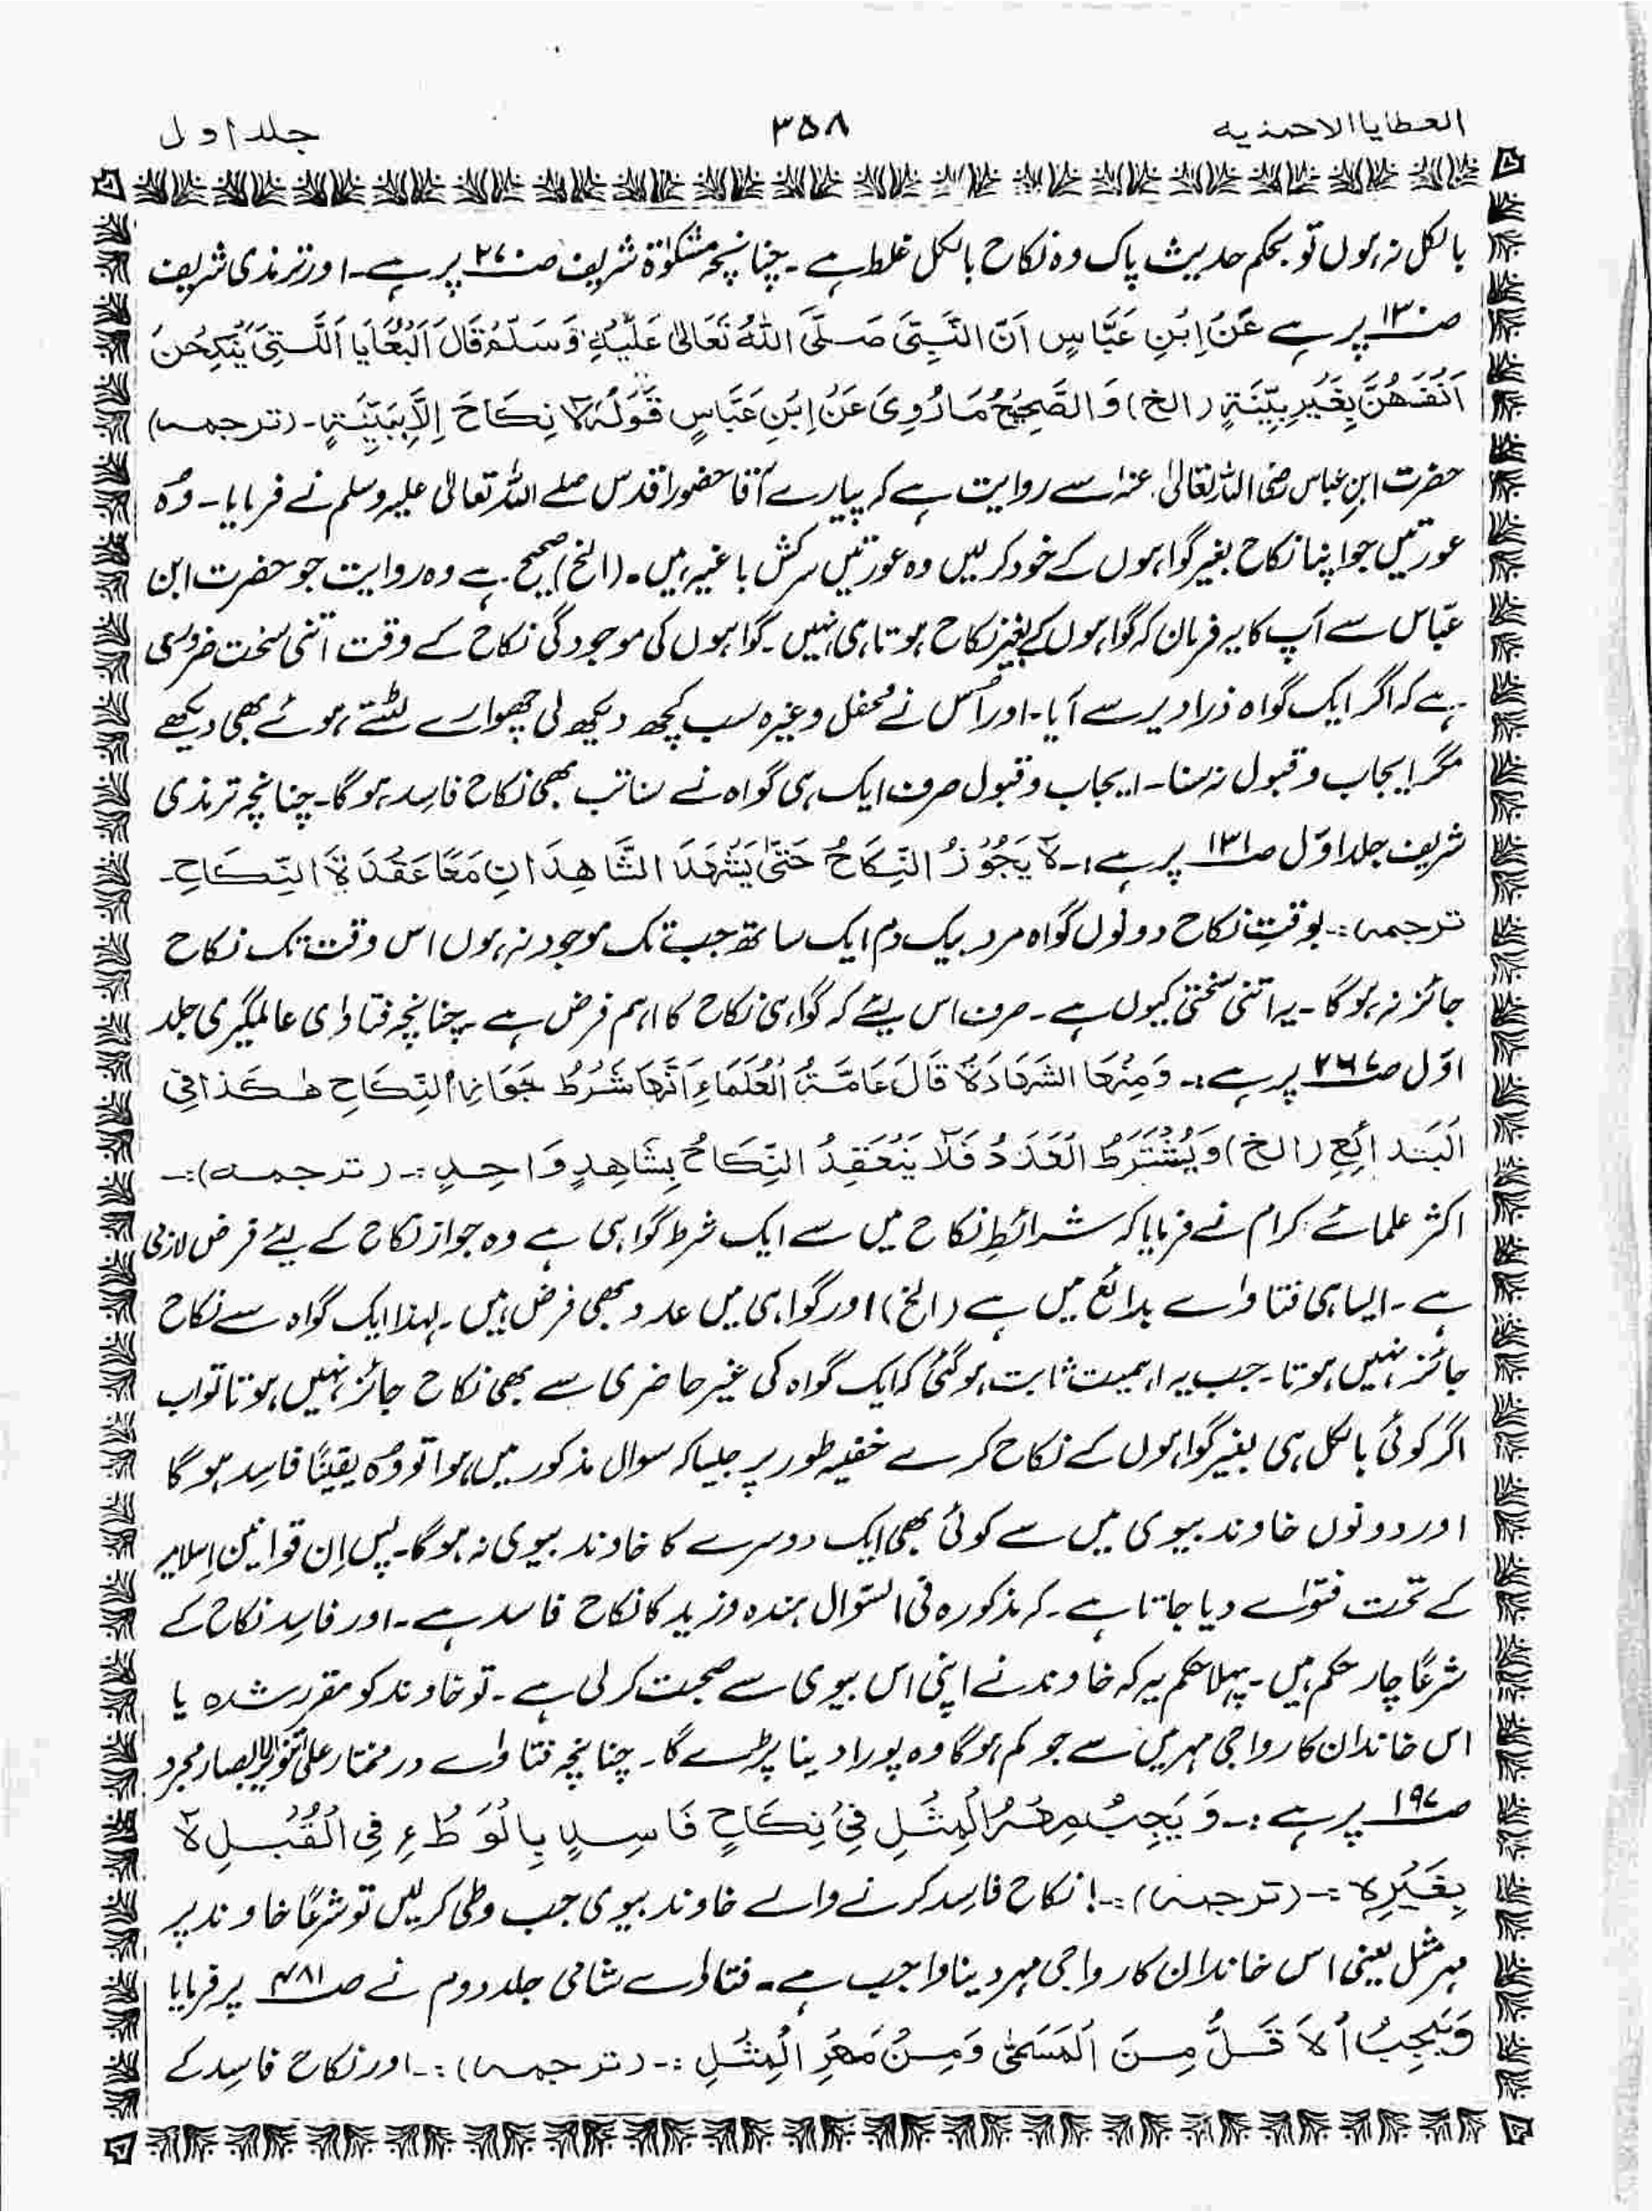 العطایا الاحمدیہ
۳۵۸
جلد اول
بالکل نہ ہوں تو بحکم حدیث پاک وہ نکاح بالکل غلط ہے۔ چنانچہ مشکوٰۃ شریف صـ۲۷۰ پر ہے۔ اور ترمذی شریف
صـ۱۳۰ پر ہے عَنْ اِبْنِ عَبَّاسٍ اَنَّ النَّبِیَّ صَلَّی اللّٰہُ تَعَالٰی عَلَیْہِ وَسَلَّمَ قَالَ اَلْبُغَایَا اَللَّتِیْ یُنْکِحْنَ
اَنْفُسَھُنَّ بِغَیْرِ بَیِّنَۃٍ (الخ) وَالصَّحِیْحُ مَا رُوِیَ عَنْ اِبْنِ عَبَّاسٍ قَوْلُہٗ لَا نِکَاحَ اِلَّا بِبَیِّنَۃٍ۔ (ترجمہ)
حضرت ابنِ عباس رضی اللہ تعالیٰ عنہ سے روایت ہے کہ پیارے آقا حضور اقدس صلے اللہ تعالیٰ علیہ وسلم نے فرمایا۔ وُہ
عورتیں جو اپنا نکاح بغیر گواہوں کے خود کر لیں وہ عورتیں سرکش باغیہ ہیں۔ (الخ) صحیح ہے وہ روایت جو حضرت ابن
عبّاس سے آپ کا یہ فرمان کہ گواہوں کے بغیر نکاح ہوتا ہی نہیں۔ گواہوں کی موجودگی نکاح کے وقت اتنی سخت ضروری
ہے کہ اگر ایک گواہ ذرا دیر سے آیا۔ اور اُس نے محفل وغیرہ سب کچھ دیکھ لی چھوارے لٹتے ہوئے بھی دیکھے
مگر ایجاب و قبول نہ سنا۔ ایجاب و قبول صرف ایک ہی گواہ نے سنا تب بھی نکاح فاسد ہو گا۔ چنانچہ ترمذی
شریف جلد اوّل صـ۱۳۱ پر ہے:۔ لَا یَجُوْزُ النِّکَاحُ حَتّٰی یَشْھَدَ الشَّاھِدَانِ مَعًا عَقْدَۃَ النِّکَاحِ۔
ترجمہ:۔ بوقتِ نکاح دونوں گواہ مرد بیک دم ایک ساتھ جب تک موجود نہ ہوں اس وقت تک نکاح
جائز نہ ہو گا۔ یہ اتنی سختی کیوں ہے۔ صرف اس لیے کہ گواہی نکاح کا اہم فرض ہے۔ چنانچہ فتاوٰی عالمگیری جلد
اوّل صـ۲۶۷ پر ہے:۔ وَمِنْھَا الشَّھَادَۃُ قَالَ عَامَّۃُ الْعُلَمَاءِ اَنَّھَا شَرْطُ جَوَازِ النِّکَاحِ ھٰکَذَا فِی
الْبَدَائِعِ (الخ) وَیُشْتَرَطُ الْعَدَدُ فَلَا یَنْعَقِدُ النِّکَاحُ بِشَاھِدٍ وَاحِدٍ :۔ (ترجمہ):۔
اکثر علمائے کرام نے فرمایا کہ شرائطِ نکاح میں سے ایک شرط گواہی ہے وہ جواز نکاح کے لیے فرض لازمی
ہے۔ ایسا ہی فتاواے بدائع میں ہے (الخ) اور گواہی میں عدد بھی فرض ہیں۔ لہٰذا ایک گواہ سے نکاح
جائز نہیں ہوتا۔ جب یہ اہمیت ثابت ہو گئی کہ ایک گواہ کی غیر حاضری سے بھی نکاح جائز نہیں ہوتا تو اب
اگر کوئی بالکل ہی بغیر گواہوں کے نکاح کرے خفیہ طور پر جیسا کہ سوال مذکور میں ہوا تو وُہ یقینًا فاسِد ہو گا
اور دونوں خاوند بیوی میں سے کوئی بھی ایک دوسرے کا خاوند بیوی نہ ہو گا۔ پس اِن قوانین اِسلامیہ
کے تحت فتوٰے دیا جاتا ہے۔ کہ مذکورہ فی السّوال ہندہ و زید کا نکاح فاسد ہے۔ اور فاسِد نکاح کے
شرعًا چار حکم ہیں۔ پہلا حکم یہ کہ خاوند نے اپنی اس بیوی سے صحبت کر لی ہے۔ تو خاوند کو مقرر شدہ یا
اس خاندان کا رواجی مہر میں سے جو کم ہو گا وہ پورا دینا پڑے گا۔ چنانچہ فتاواے در مختار علٰی تنویر الابصار مجرد
صـ۱۹۷ پر ہے :۔ وَیَجِبُ مَھْرُ الْمِثْلِ فِیْ نِکَاحٍ فَاسِدٍ بِالْوَطْءِ فِی الْقُبُلِ لَا
بِغَیْرِہٖ :۔ (ترجمہ):۔! نکاح فاسِد کرنے والے خاوند بیوی جب وطی کر لیں تو شرعًا خاوند پر
مہر مثل یعنی اس خاندان کا رواجی مہر دینا واجب ہے۔ فتاوٰے شامی جلد دوم نے صـ۴۸۱ پر فرمایا
وَیَجِبُ الْاَقَلُّ مِنَ الْمُسَمّٰی وَمِنْ مَھْرِ الْمِثْلِ :۔ (ترجمہ):۔ اور نکاح فاسِد کے